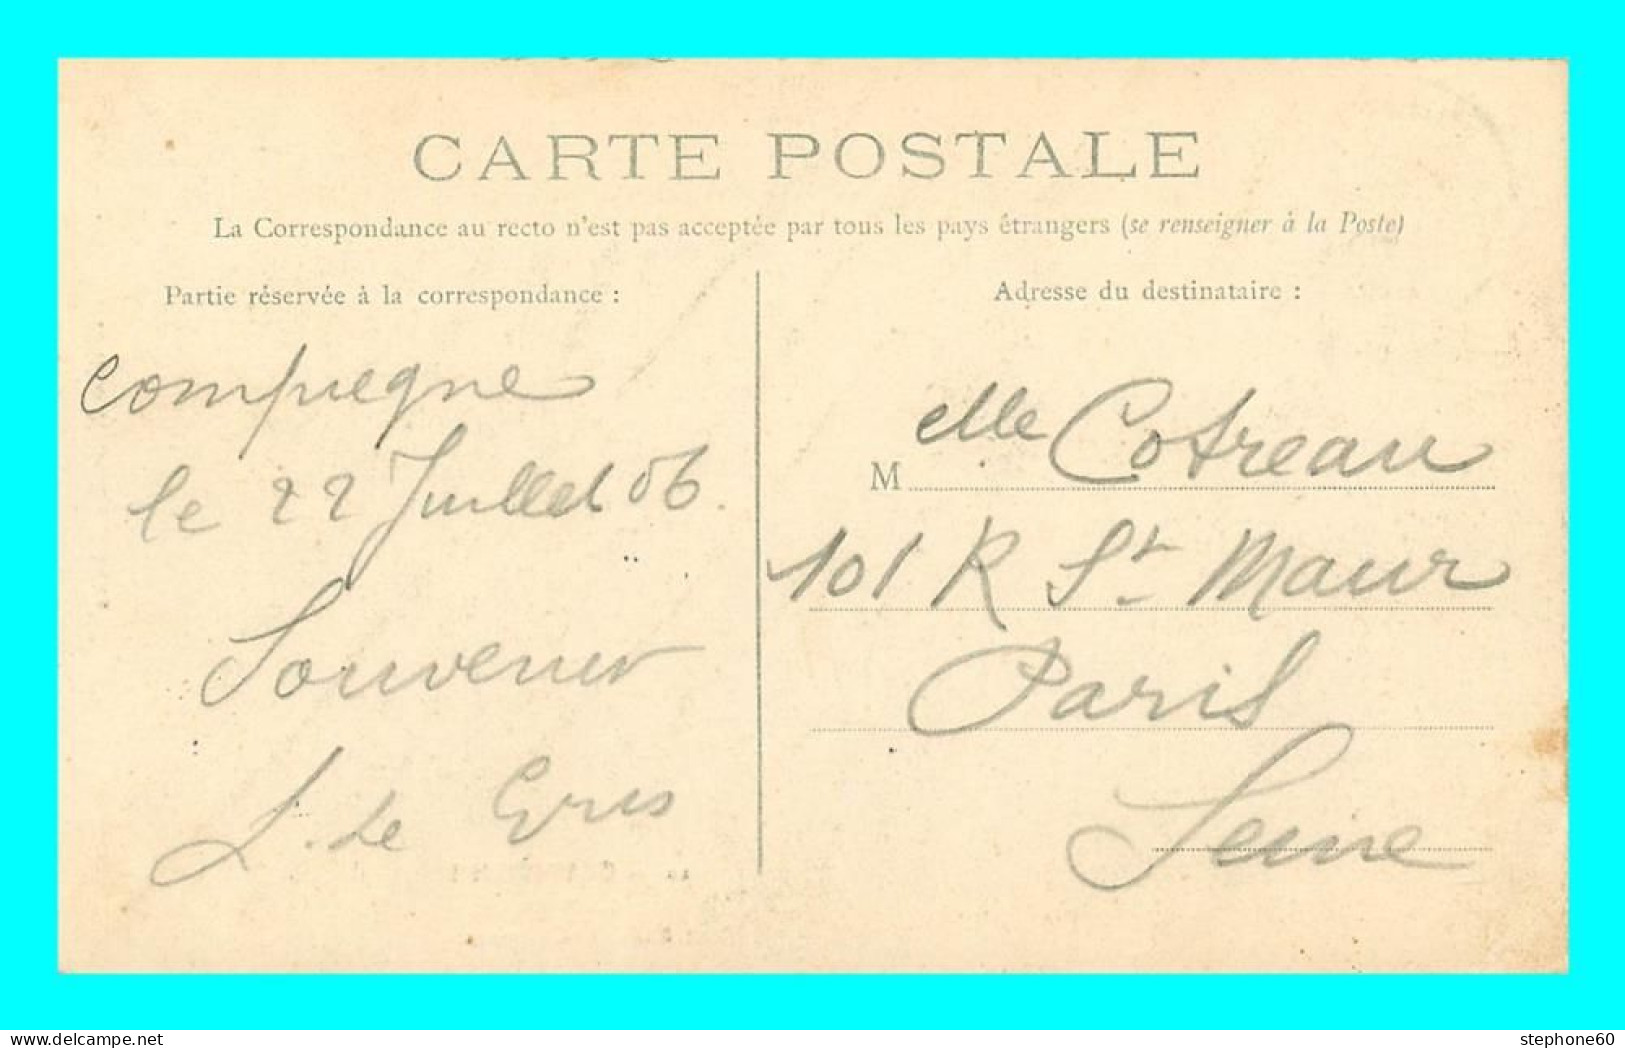 CARTE POSTALE
La Correspondance au recto n'est pas acceptée par tous les pays étrangers (se renseigner à la Poste)
Partie réservée à la correspondance :
compiegne
le 22 Juillet 06
Souvenir
L. Le Gris
Adresse du destinataire :
M elle Cotreau
101 R St Maur
Paris
Seine
delcampe.net
stephone60